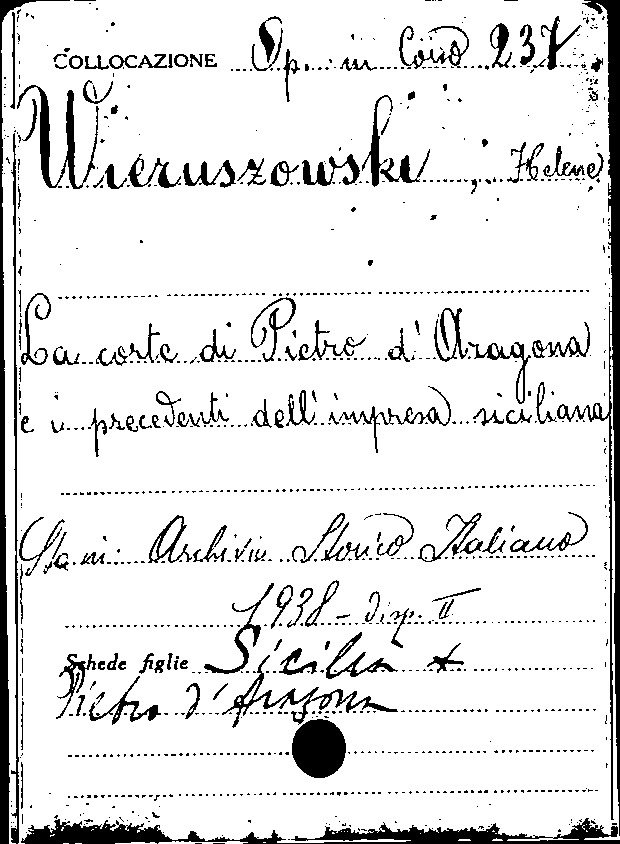 COLLOCAZIONE Op. in Cons 237
Wieruszowski, Helene
La corte di Pietro d'Aragona
e i precedenti dell'impresa siciliana
Sta in: Archivio Storico Italiano
1938 - disp. II
Schede figlie Sicilia +
Pietro d'Aragona